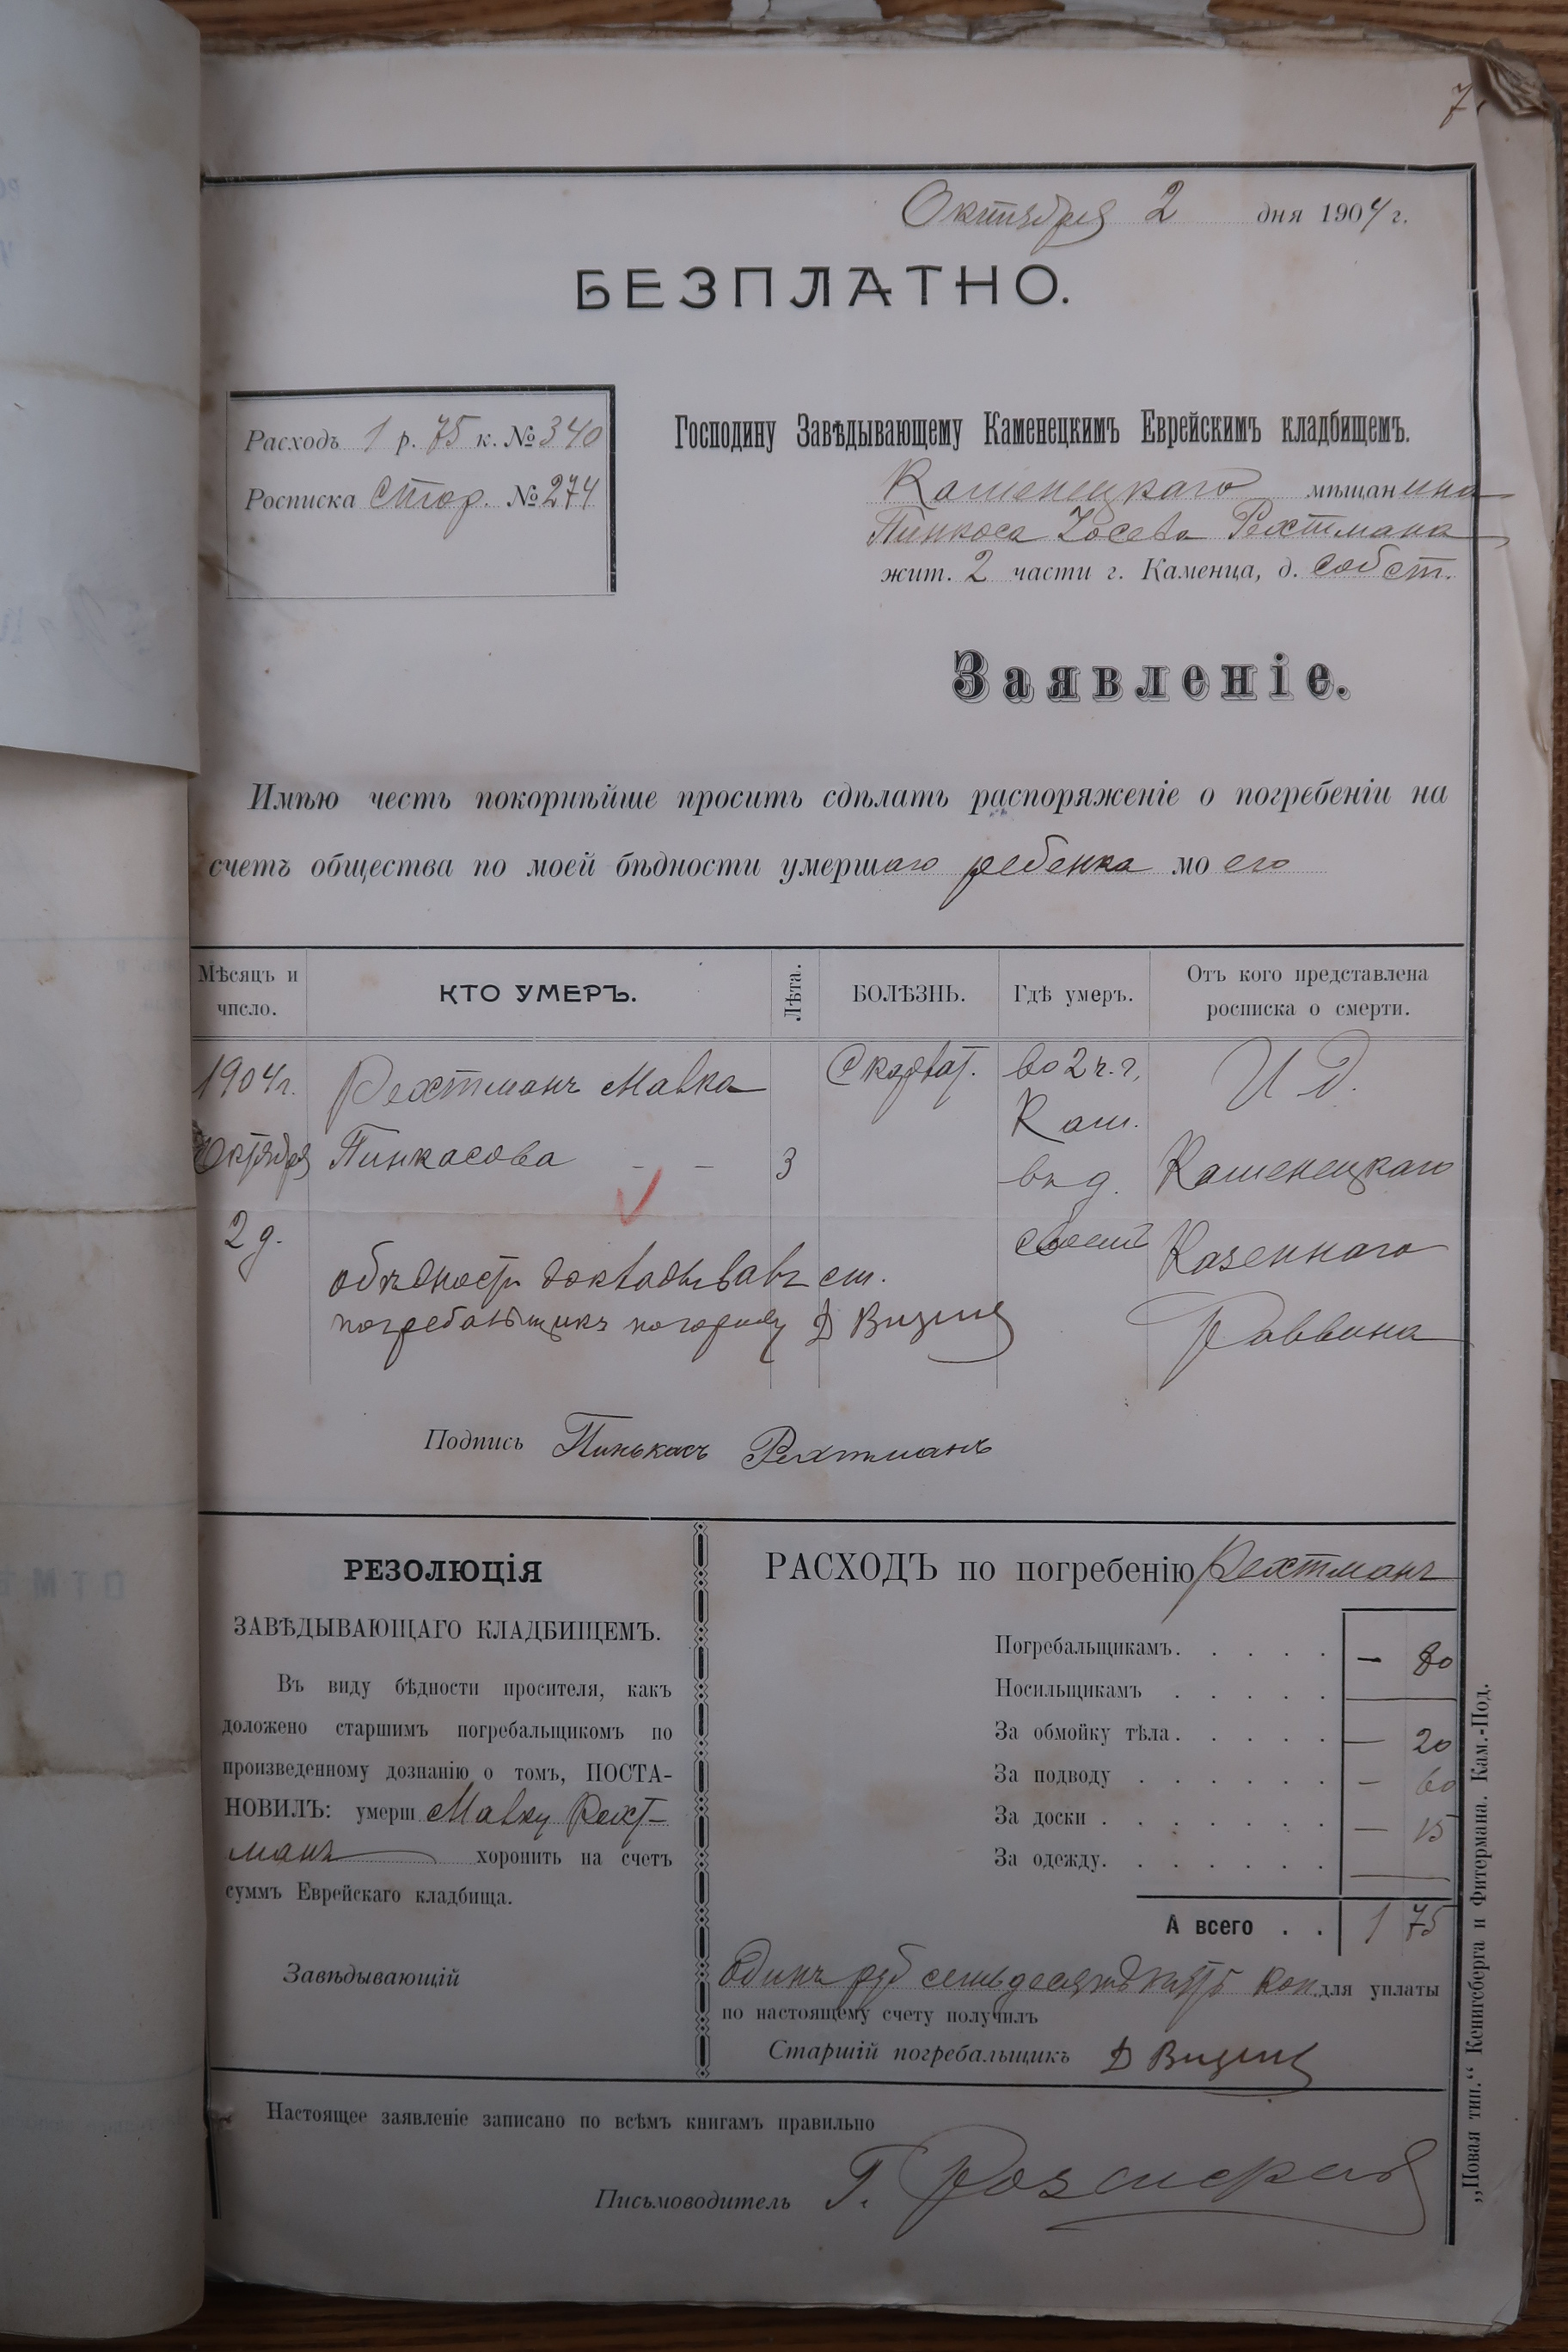 7.
Октября 2 дня 1904 г.
БЕЗПЛАТНО.
Расходъ 1 р. 75 к. № 340
Росписка стор. № 274
Господину Завѣдывающему Каменецкимъ Еврейскимъ кладбищемъ.
Каменецкаго мѣщанина
Пинкоса Іосева Рехтмана
жит. 2 части г. Каменца, д. собст.
Заявленіе.
Имѣю честь покорнѣйше просить сдѣлать распоряженіе о погребеніи на
счетъ общества по моей бѣдности умершаго ребенка моего
Мѣсяцъ и число.
КТО УМЕРЪ.
Лѣта.
БОЛѢЗНЬ.
Гдѣ умеръ.
Отъ кого представлена росписка о смерти.
1904 г. Рехтманъ Мавка Скарлат. во 2 ч. г. И д.
Кам.
Октября Пинкасова - - 3 въ д. Каменецкаго
2 д. Казеннаго
обѣдности докладывавъ ст.
погребальщикъ Д Визель
Раввина
Подпись Пинькасъ Рехтманъ
РЕЗОЛЮЦІЯ
ЗАВѢДЫВАЮЩАГО КЛАДБИЩЕМЪ.
Въ виду бѣдности просителя, какъ
доложено старшимъ погребальщикомъ по
произведенному дознанію о томъ, ПОСТА-
НОВИЛЪ: умерш Мавку Рехт-
манъ хоронить на счетъ
суммъ Еврейскаго кладбища.
Завѣдывающій
РАСХОДЪ по погребенію Рехтманъ
Погребальщикамъ. . . . . — 80
Носильщикамъ . . . . . —
За обмойку тѣла. . . . . — 20
За подводу . . . . . . — 60
За доски . . . . . . . — 15
За одежду. . . . . . . —
А всего . . 1 75
Одинъ руб семьдесятъ пять коп для уплаты
по настоящему счету получилъ
Старшій погребальщикъ Д Визель
Настоящее заявленіе записано по всѣмъ книгамъ правильно
Письмоводитель Г.
„Новая тип.“ Кенигсберга и Фитермана. Кам.-Под.